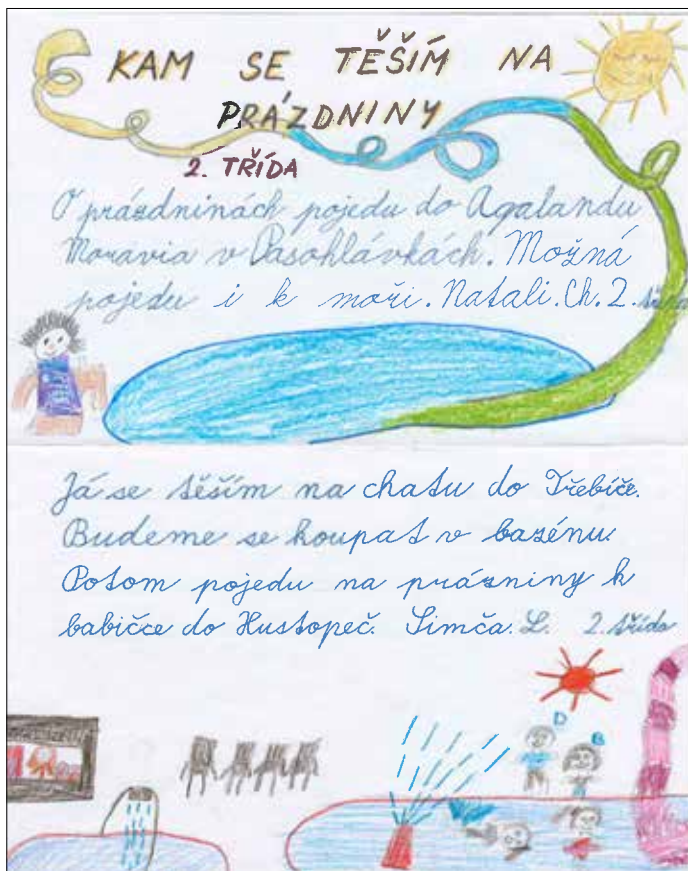 KAM SE TĚŠÍM NA
PRÁZDNINY
2. TŘÍDA
O prázdninách pojedu do Aqalandu
Moravia v Pasohlávkách. Možná
pojedu i k moři. Natali. Ch. 2. třída
Já se těším na chatu do Třebíče.
Budeme se koupat v bazénu.
Potom pojedu na prázniny k
babičce do Hustopeč. Simča. L. 2. třída
D
B